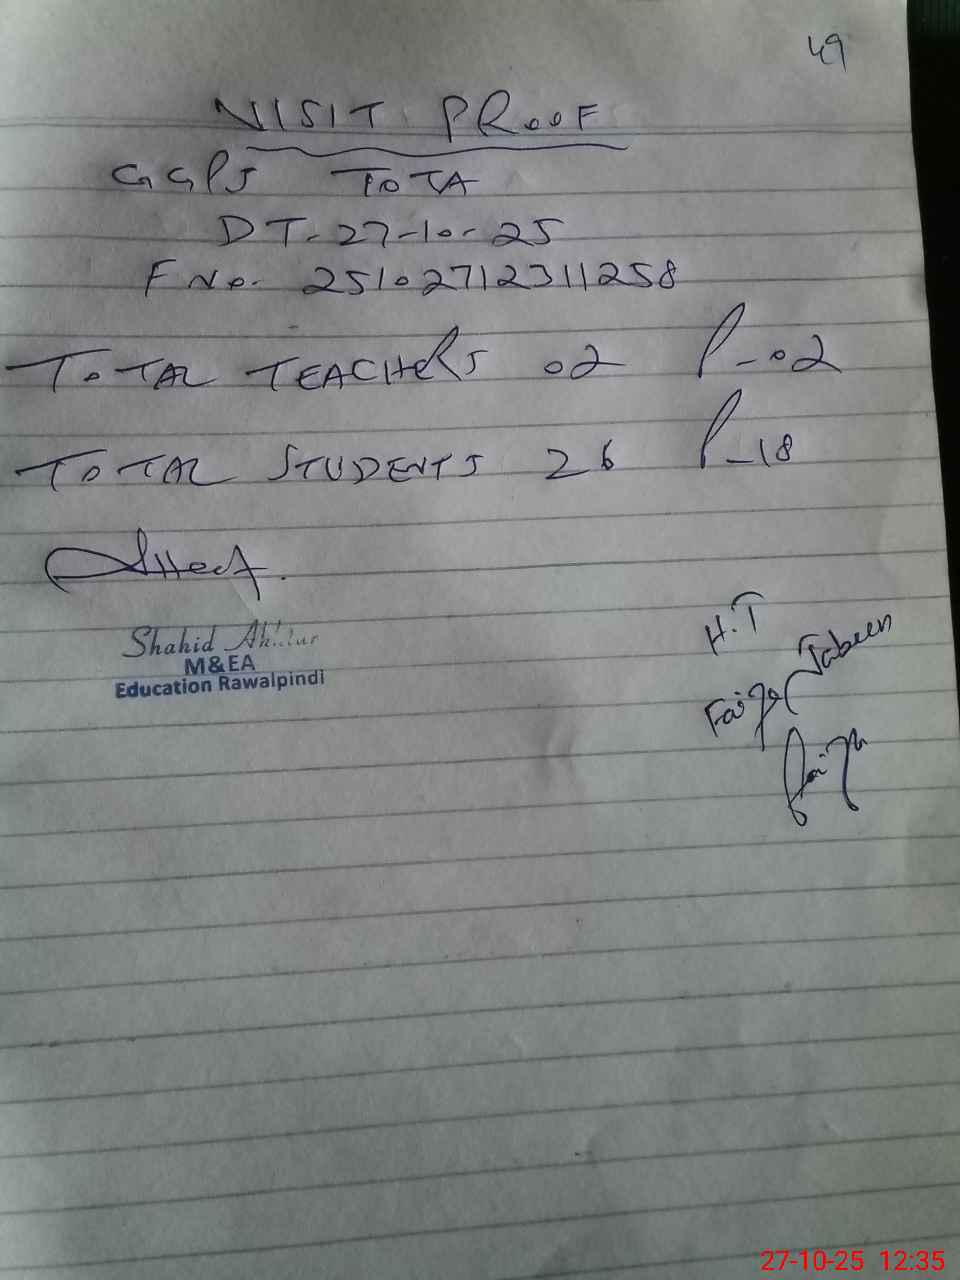 49
VISIT PROOF
GGPS TOTA
DT. 27-10-25
F No. 25102712311258
TOTAL TEACHERS 02 P-02
TOTAL STUDENTS 26 P-18
Shahid Akhtar
M&EA
Education Rawalpindi
H.T
Faiza Jabeen
27-10-25 12:35